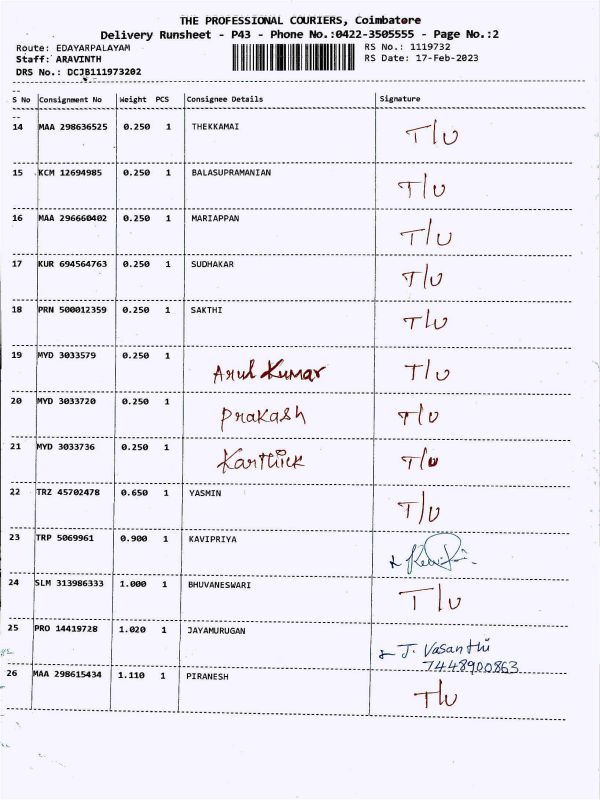 THE PROFESSIONAL COURIERS, Coimbatore
Delivery Runsheet - P43 - Phone No.:0422-3505555 - Page No.:2
Route: EDAYARPALAYAM RS No.: 1119732
Staff: ARAVINTH RS Date: 17-Feb-2023
DRS No.: DCJB111973202
S No Consignment No Weight PCS Consignee Details Signature
14 MAA 298636525 0.250 1 THEKKAMAI T/U
15 KCM 12694985 0.250 1 BALASUPRAMANIAN T/U
16 MAA 296660402 0.250 1 MARIAPPAN T/U
17 KUR 694564763 0.250 1 SUDHAKAR T/U
18 PRN 500012359 0.250 1 SAKTHI T/U
19 MYD 3033579 0.250 1 Arul Kumar T/U
20 MYD 3033720 0.250 1 Prakash T/U
21 MYD 3033736 0.250 1 Karthick T/U
22 TRZ 45702478 0.650 1 YASMIN T/U
23 TRP 5069961 0.900 1 KAVIPRIYA
24 SLM 313986333 1.000 1 BHUVANESWARI T/U
25 PRO 14419728 1.020 1 JAYAMURUGAN J. Vasanthi
7448900863
26 MAA 298615434 1.110 1 PIRANESH T/U